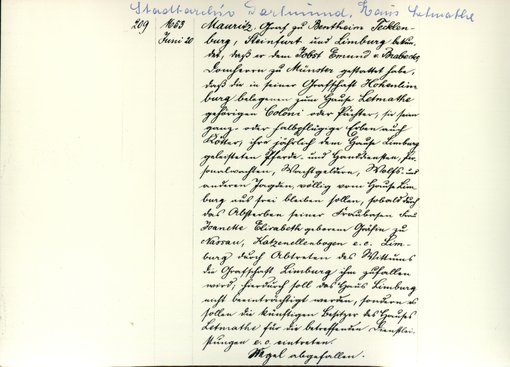 Stadtarchiv Dortmund, Haus Letmathe
209 1653 Mauritz, Graf zu Bentheim Tecklen-
Juni 20 burg, Steinfurt und Limburg bekun-
det, daß er dem Jobst Edmund v. Brabeck,
Domherrn zu Münster gestattet habe,
daß die in seiner Grafschaft Hohenlim
burg belegenen zum Hause Letmathe
gehörigen Coloni oder Pächter, sie seien
ganz- oder halbpflügige Erben auch
Kötter, ihre jährlich dem Hause Limburg
geleisteten Pferde- und Handdiensten, Per-
sonalwachten, Wachtgeldern, Wolfs- und
anderen Jagden völlig vom Hause Lim
burg aus frei bleiben sollen, sobald durch
das Absterben seiner Fraubasen Frau
Joancke Elisabeth geborene Gräfin zu
Nassau, Katzenellenbogen e. c. Lim-
burg durch Abtreten des Wittums
die Grafschaft Limburg ihm zufallen
wird, hierdurch soll das Haus Limburg
nicht beeinträchtigt werden, sondern es
sollen die künftigen Besitzer des Hauses
Letmathe für die betreffenden Dienstlei-
stungen e. c. eintreten.
Siegel abgefallen.